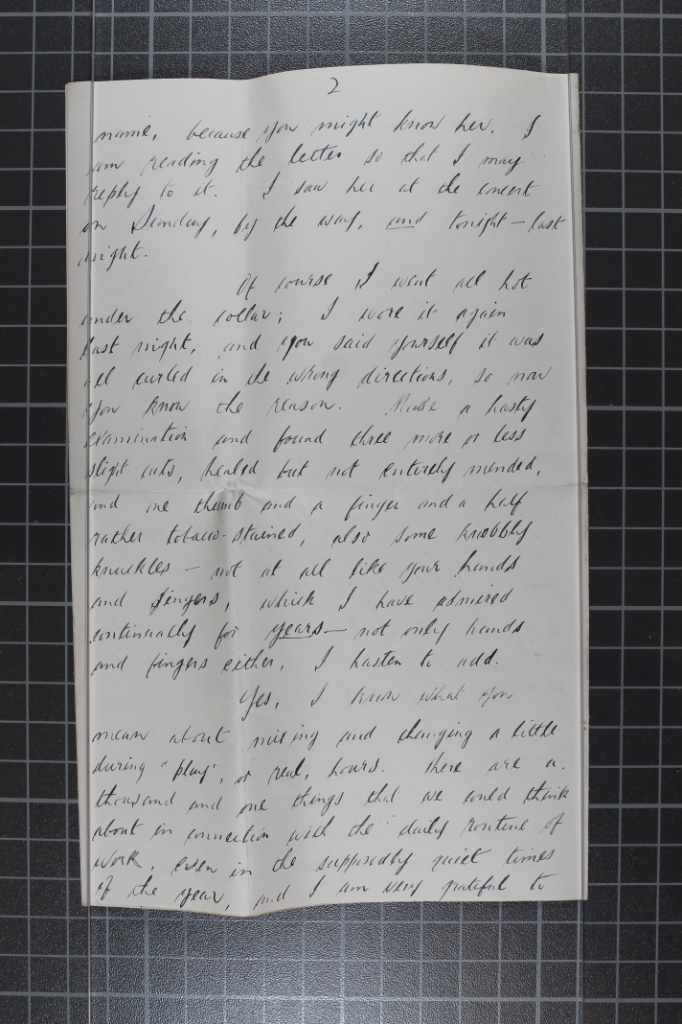 2
name, because you might know her. I
am reading the letter so that I may
reply to it. I saw her at the concert
on Sunday, by the way, and tonight – last
night.
Of course I went all hot
under the collar; I wore it again
last night, and you said yourself it was
all curled in the wrong directions, so now
you know the reason. Made a hasty
examination and found three more or less
slight cuts, healed but not entirely mended,
and one thumb and a finger and a half
rather tobacco-stained, also some knobbly
knuckles – not at all like your hands
and fingers, which I have admired
continually for years – not only hands
and fingers either, I hasten to add.
Yes, I know what you
mean about mixing and changing a little
during "play", or real, hours. There are a
thousand and one things that we could think
about in connection with the daily routine of
work, even in the supposedly quiet times
of the year, and I am very grateful to